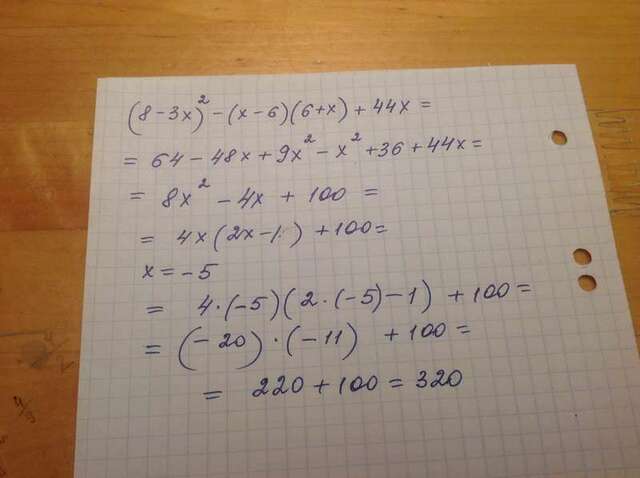 (8-3x)² - (x-6)(6+x) + 44x =
= 64 - 48x + 9x² - x² + 36 + 44x =
= 8x² - 4x + 100 =
= 4x(2x-1) + 100 =
x = -5
= 4·(-5)(2·(-5)-1) + 100 =
= (-20)·(-11) + 100 =
= 220 + 100 = 320